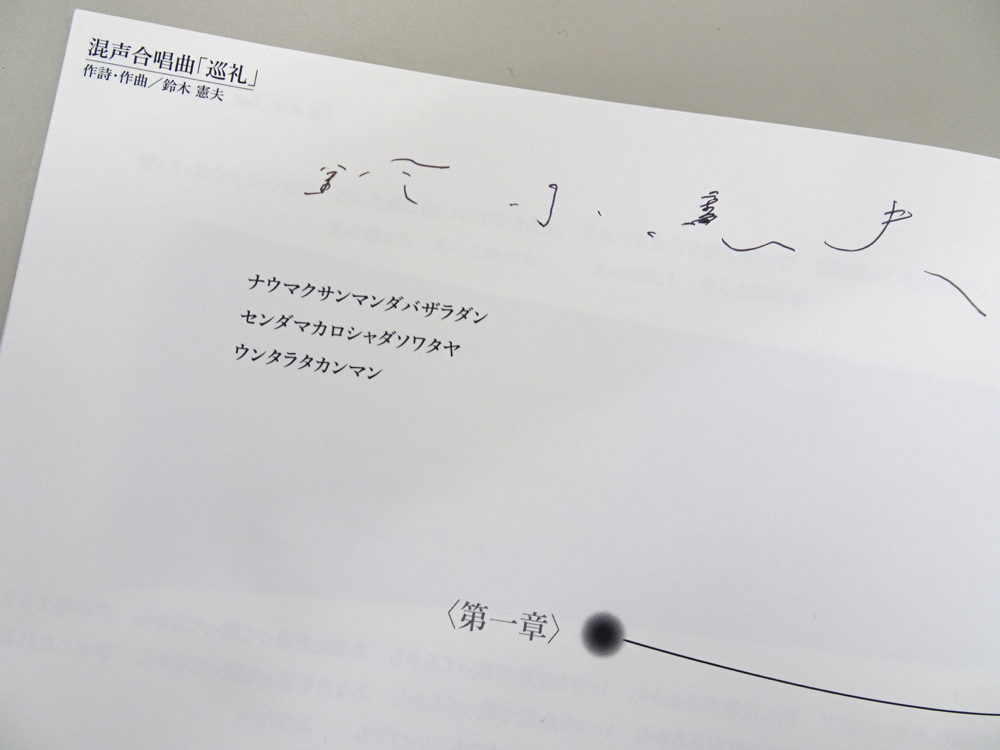 混声合唱曲「巡礼」
作詩・作曲／鈴木 憲夫
ナウマクサンマンダバザラダン
センダマカロシャダソワタヤ
ウンタラタカンマン
〈第一章〉